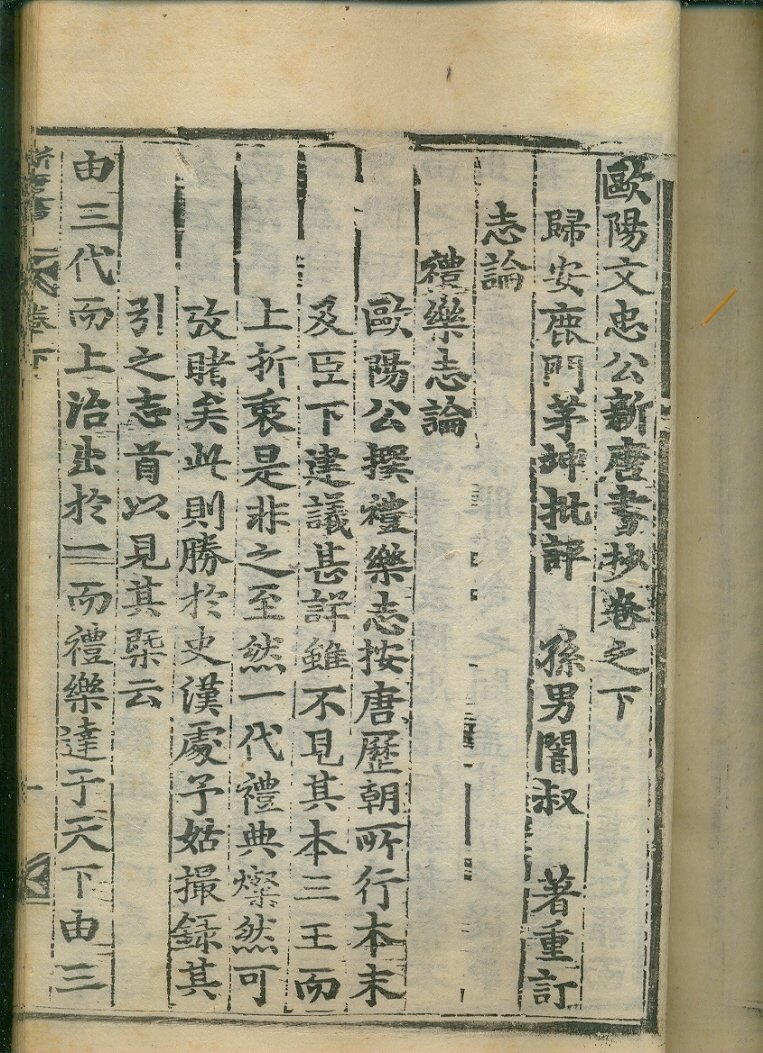 歐陽文忠公新唐書抄卷之下
歸安鹿門茅坤批評　孫男闇叔　著重訂
志論
禮樂志論
歐陽公撰禮樂志按唐歷朝所行本末
及臣下建議甚詳雖不見其本三王而
上折衷是非之至然一代禮典燦然可
攷睹矣此則勝於史漢處予姑撮錄其
引之志首以見其槩云
由三代而上治出於一而禮樂達于天下由三
新唐書　卷下　一